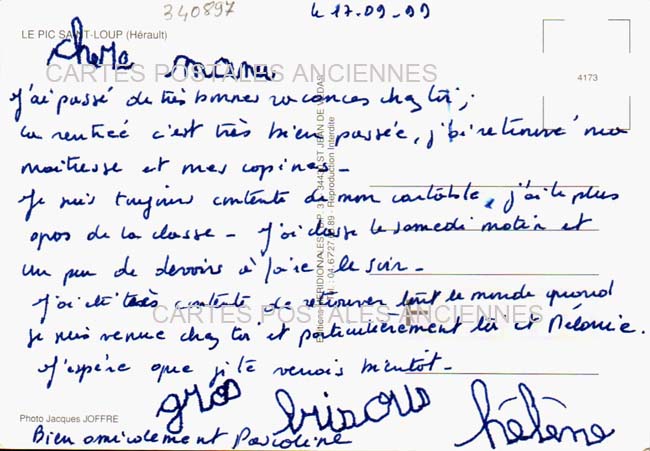 340897
le 17.09.99
LE PIC SAINT-LOUP (Hérault)
chère mamu
CARTES POSTALES ANCIENNES
4173
J'ai passé de très bonnes vacances chez toi,
la rentreé c'est très bien passée, j'ai retrouvé ma
maitresse et mes copines -
Je suis toujours contente de mon cartable, j'ai le plus
gros de la classe - J'ai classe le samedi matin et
un peu de devoirs à faire le soir -
J'ai été très contente de retrouver tout le monde quand
CARTES POSTALES ANCIENNES
je suis venue chez toi et particulièrement toi et Mélanie.
J'espère que j'te verrais bientôt -
gros bisous hélène
Photo Jacques JOFFRE
Bien amicalement Pascaline
Reproduction Interdite